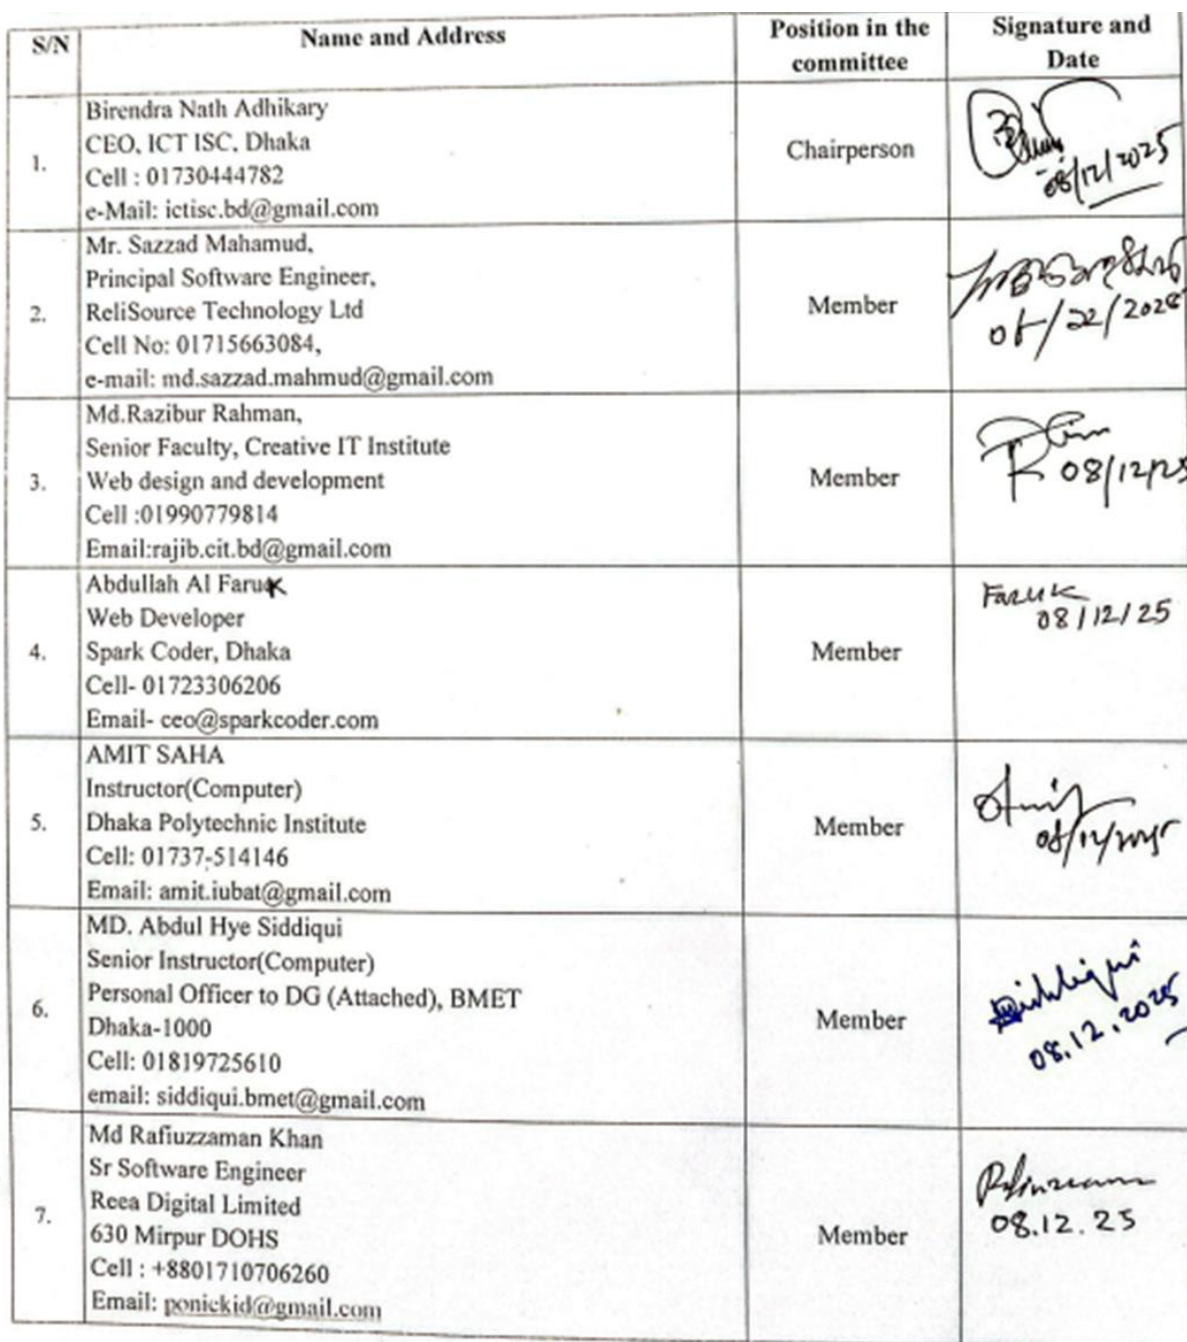 S/N
Name and Address
Position in the committee
Signature and Date
1.
Birendra Nath Adhikary
CEO, ICT ISC, Dhaka
Cell : 01730444782
e-Mail: ictisc.bd@gmail.com
Chairperson
08/12/2025
2.
Mr. Sazzad Mahamud,
Principal Software Engineer,
ReliSource Technology Ltd
Cell No: 01715663084,
e-mail: md.sazzad.mahmud@gmail.com
Member
3.
Md.Razibur Rahman,
Senior Faculty, Creative IT Institute
Web design and development
Cell :01990779814
Email:rajib.cit.bd@gmail.com
Member
08/12/25
4.
Abdullah Al Faruk
Web Developer
Spark Coder, Dhaka
Cell- 01723306206
Email- ceo@sparkcoder.com
Member
Faruk
08/12/25
5.
AMIT SAHA
Instructor(Computer)
Dhaka Polytechnic Institute
Cell: 01737-514146
Email: amit.iubat@gmail.com
Member
08/12/2025
6.
MD. Abdul Hye Siddiqui
Senior Instructor(Computer)
Personal Officer to DG (Attached), BMET
Dhaka-1000
Cell: 01819725610
email: siddiqui.bmet@gmail.com
Member
08.12.2025
7.
Md Rafiuzzaman Khan
Sr Software Engineer
Reea Digital Limited
630 Mirpur DOHS
Cell : +8801710706260
Email: ponickid@gmail.com
Member
08.12.25